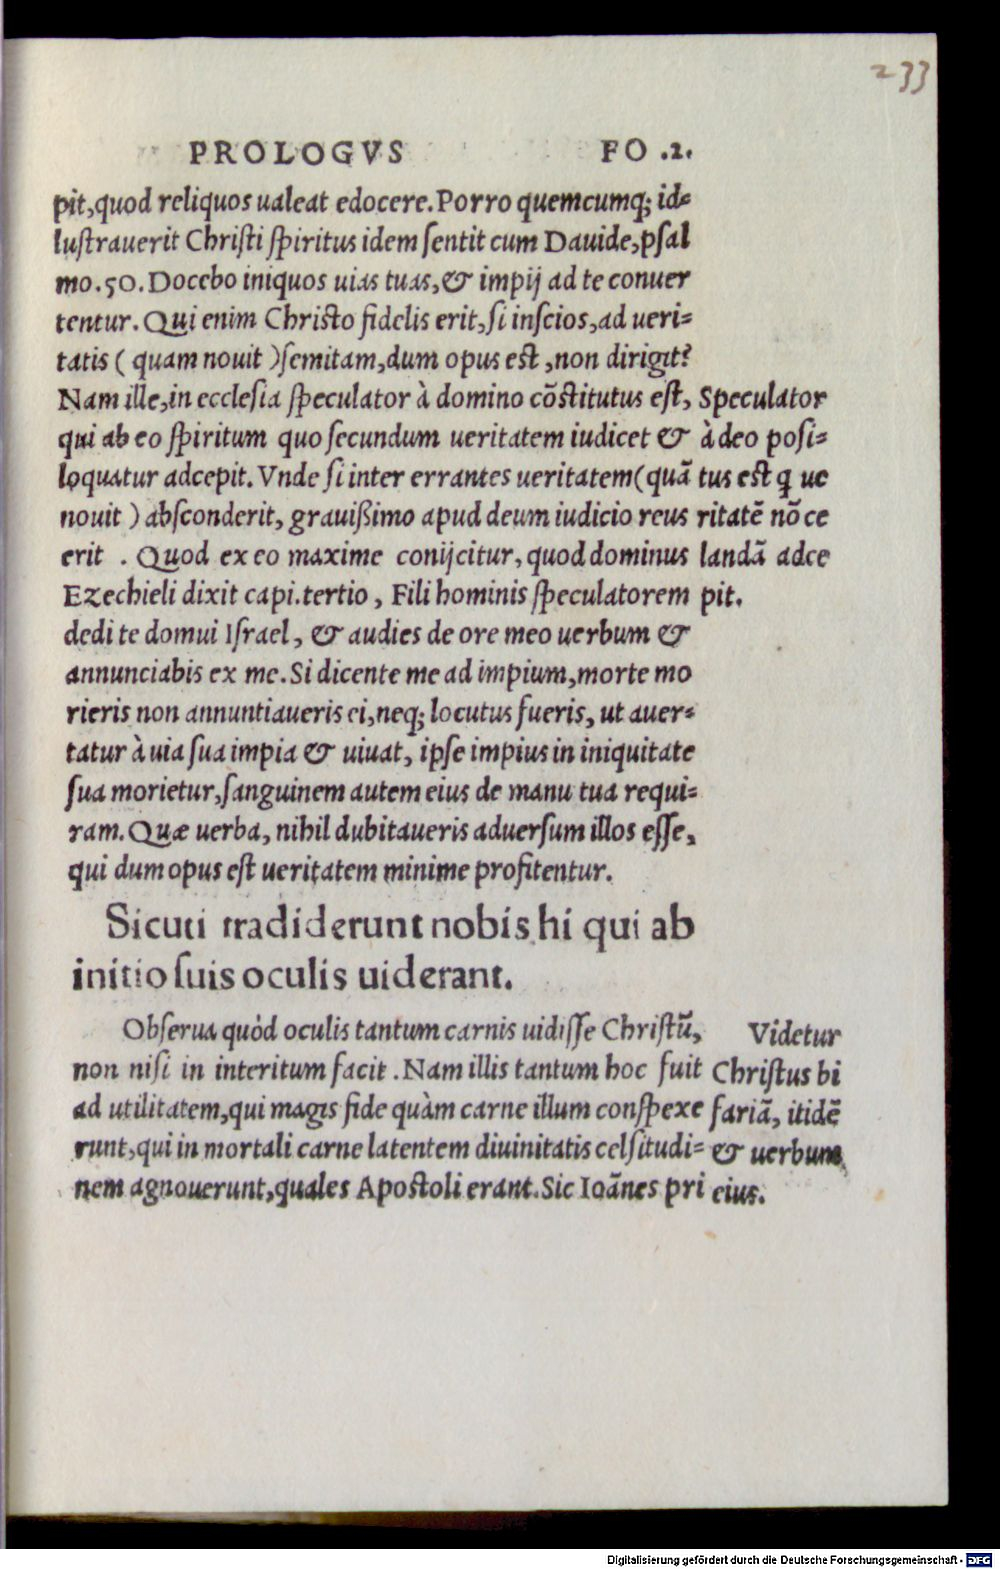 233
PROLOGVS FO .2.
pit,quod reliquos ualeat edocere.Porro quemcumq; id=
lustrauerit Christi spiritus idem sentit cum Dauide,psal
mo.50.Docebo iniquos uias tuas,& impij ad te conuer
tentur.Qui enim Christo fidelis erit,si inscios,ad ueri=
tatis ( quam nouit )semitam,dum opus est ,non dirigit?
Nam ille,in ecclesia speculator à domino cōstitutus est,
qui ab eo spiritum quo secundum ueritatem iudicet &
loquatur adcepit.Vnde si inter errantes ueritatem(quā
nouit ) absconderit, grauißimo apud deum iudicio reus
erit . Quod ex eo maxime conijcitur, quod dominus
Ezechieli dixit capi.tertio , Fili hominis speculatorem
dedi te domui Israel, & audies de ore meo uerbum &
annunciabis ex me.Si dicente me ad impium,morte mo
rieris non annuntiaueris ei,neq; locutus fueris, ut auer=
tatur à uia sua impia & uiuat, ipse impius in iniquitate
sua morietur,sanguinem autem eius de manu tua requi=
ram.Quæ uerba, nihil dubitaueris aduersum illos esse,
qui dum opus est ueritatem minime profitentur.
Speculator
à deo posi=
tus est ꝙ ue
ritatē nō ce
landā adce
pit.
Sicuti tradiderunt nobis hi qui ab
initio suis oculis uiderant.
Obserua quòd oculis tantum carnis uidisse Christū,
non nisi in interitum facit .Nam illis tantum hoc fuit
ad utilitatem,qui magis fide quàm carne illum conspexe
runt,qui in mortali carne latentem diuinitatis celsitudi=
nem agnouerunt,quales Apostoli erant.Sic Ioānes pri
Videtur
Christus bi
fariā, itidē
& uerbum
eius.
Digitalisierung gefördert durch die Deutsche Forschungsgemeinschaft - DFG